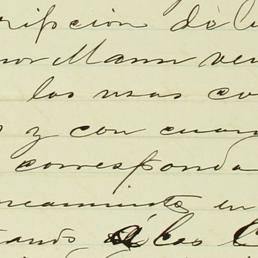 ripcion de
nor Mann ven
los usos co
y con cuan
corresponda
reamiento en
tando á las C